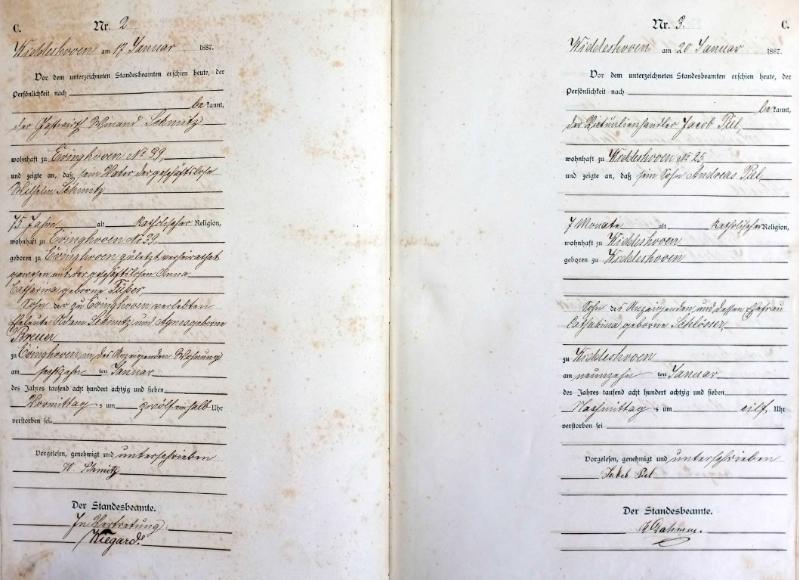 C.
Nr. 2
Widdeshoven am 17 Januar 1887.
Vor dem unterzeichneten Standesbeamten erschien heute, der
Persönlichkeit nach
bekannt,
der Gastwirth Schmitz
wohnhaft zu Evinghoven No 39,
und zeigte an, daß sein Vater der geschäftslose
Wilhelm Schmitz
75 Jahre alt Katholischer Religion,
wohnhaft zu Evinghoven No 39,
geboren zu Evinghoven zuletzt verheirathet
gewesen mit der geschäftslosen Anna
Catharina geborne
Sohn der zu Evinghoven verlebten
Eheleute Adam Schmitz und Agnes geborne
Breuer
zu Evinghoven in des Anzeigenden Wohnung
am sechszehn ten Januar
des Jahres tausend acht hundert achtzig und sieben
Vormittags um zwölf einhalb Uhr
verstorben sei.
Vorgelesen, genehmigt und unterschrieben
W. Schmitz
Der Standesbeamte.
In Vertretung
Wiegard.
Nr. 3.
C.
Widdeshoven am 20 Januar 1887.
Vor dem unterzeichneten Standesbeamten erschien heute, der
Persönlichkeit nach
bekannt,
der Jacob Piel
wohnhaft zu Widdeshoven No 25,
und zeigte an, daß sein Sohn Andreas Piel
7 Monate alt Katholischer Religion,
wohnhaft zu Widdeshoven
geboren zu Widdeshoven
Sohn des Anzeigenden und dessen Ehefrau
Catharina geborne Schlösser
zu Widdeshoven
am neunzehn ten Januar
des Jahres tausend acht hundert achtzig und sieben
Nachmittags um eilf Uhr
verstorben sei
Vorgelesen, genehmigt und unterschrieben
Jakob Piel
Der Standesbeamte.